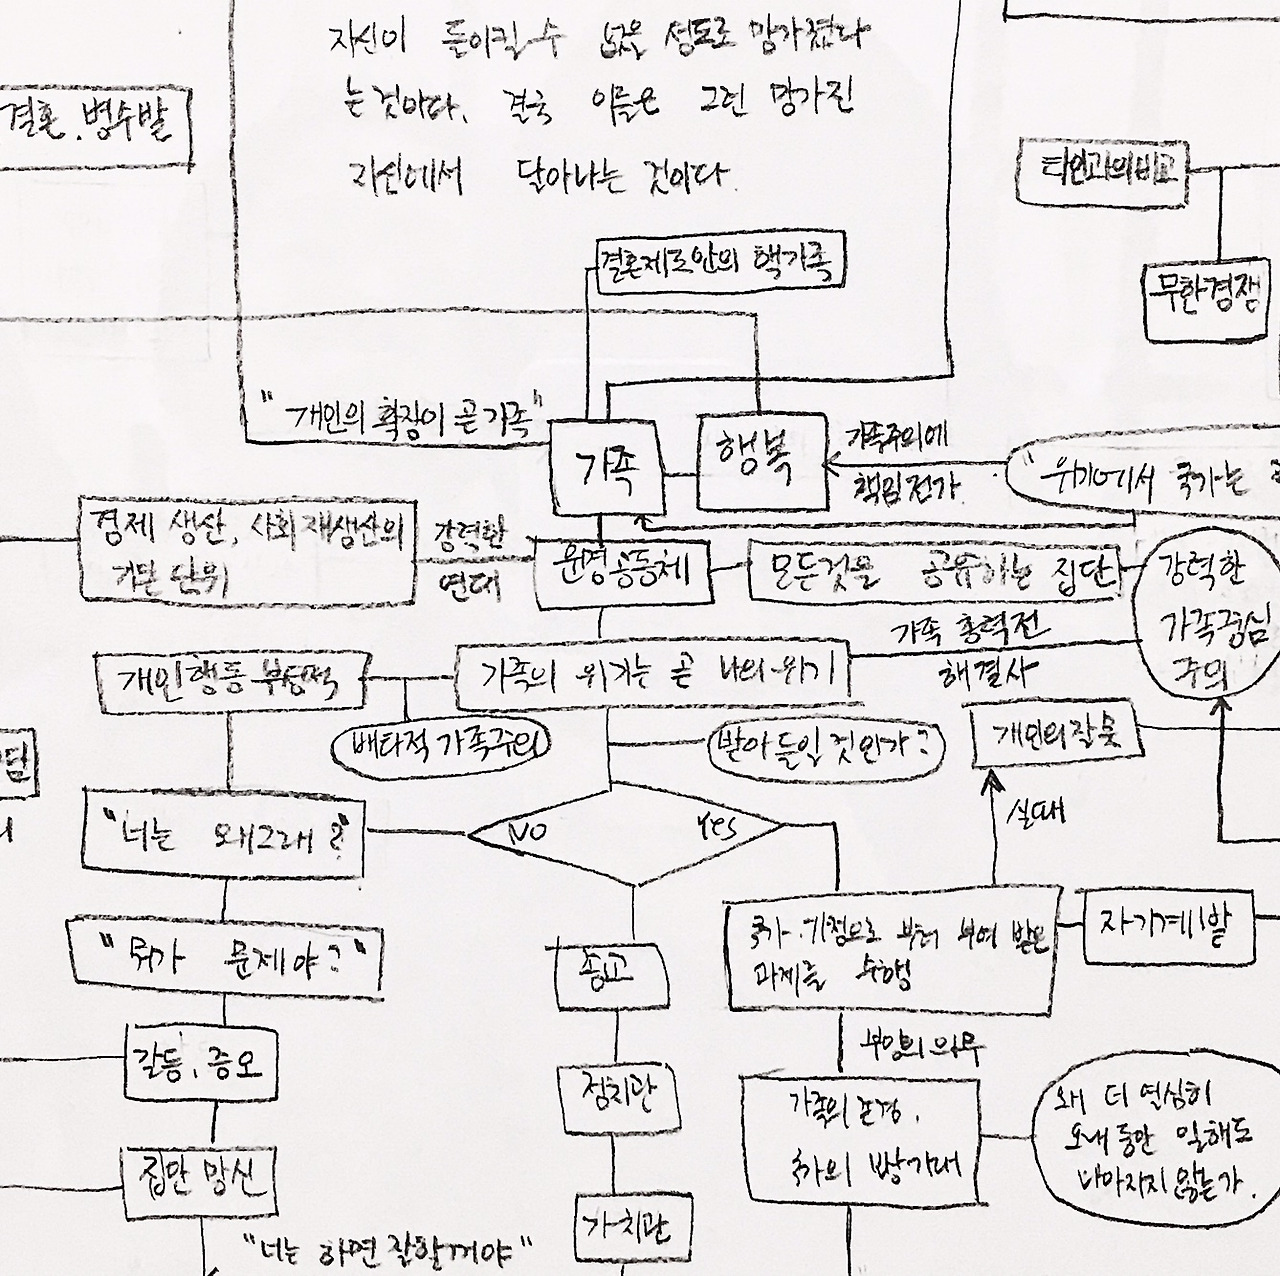 자신이 돌이킬 수 없을 정도로 망가졌다
는것이다. 결국 이들은 그런 망가진
자신에서 달아나는 것이다.
결혼, 병수발
타인과의비교
결혼제도안의 핵가족
무한경쟁
"개인의 확장이 곧가족"
가족
행복
가족주의에
책임전가
"위기에서 국가는
경제 생산, 사회재생산의
기본 단위
강력한
연대
운명공동체
모든것을 공유하는 집단
강력한
가족중심
주의
가족 총력전
해결사
개인행동 부정적
가족의 위기는 곧 나의 위기
배타적 가족주의
받아들일 것인가?
개인의잘못
실패
"너는 왜그래?"
NO
YES
국가·가정으로 부터 부여 받은
과제를 수행
자기계발
"뭐가 문제야?"
종교
갈등, 증오
부양의 의무
정치관
가족의 존경,
국가의 밥상
왜 더 열심히
오래동안 일해도
나아지지 않는가.
집안 망신
가치관
"너는 하면 잘할꺼야"